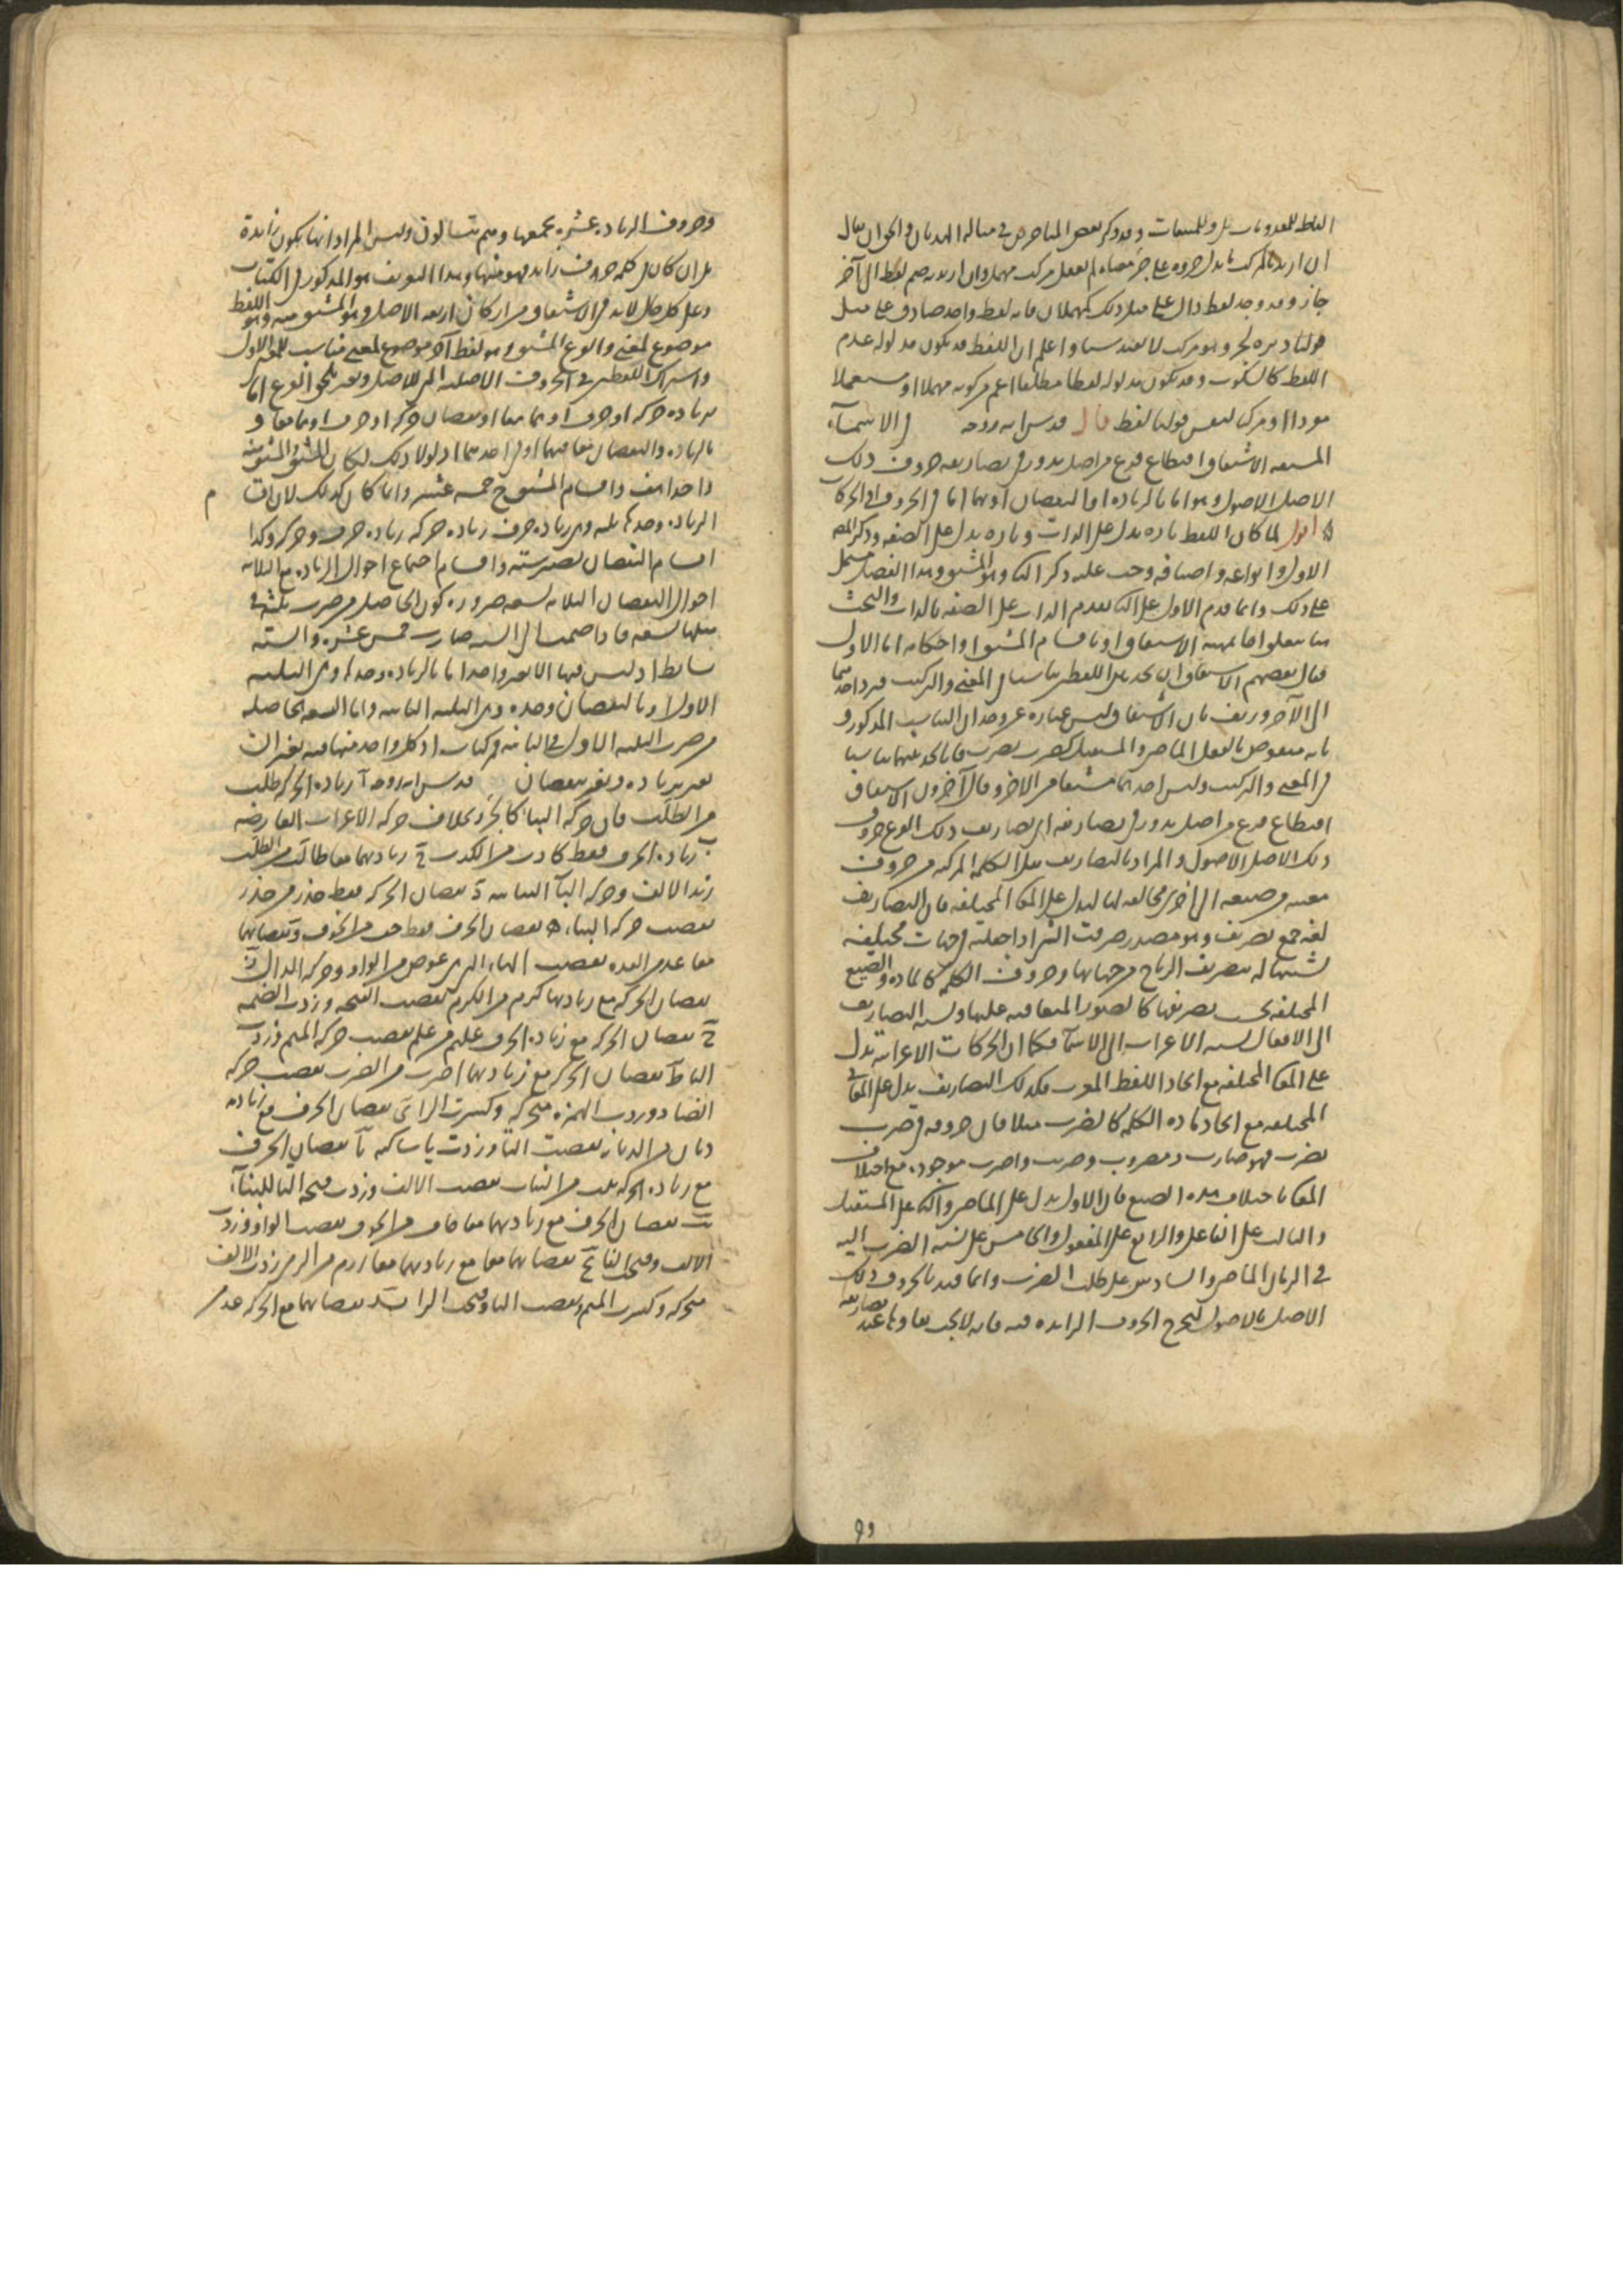 ان اريد بالمركب ما يدل جزوه على جزء معناه لم يعقل مركب مهمل وان اريد به ضم لفظ الى آخر
جاز وقد وجد لفظ دال على مثل ذلك كمهملان فانه لفظ واحد صادق على مثل
واعلم ان اللفظ قد يكون مدلوله عدم
اللفظ كالسكوت وقد يكون مدلوله لفظا مطلقا اعم من كونه مهملا او مستعملا
مفردا او مركبا كنفس قولنا لفظ قال قدس الله روحه في الاسماء
المشتقه الاشتقاق اقتطاع فرع من اصل يدور في تصاريفه حروف ذلك
الاصل الاصول وهو اما بالزياده او النقصان او بهما اما في الحروف او في الحركات
اقول لما كان اللفظ تاره يدل على الذات وتاره يدل على الصفه وذكر المص
الاول وانواعه واصنافه وجب عليه ذكر الثانى وهو المشتق وهذا الفصل مشتمل
على ذلك وانما قدم الاول على الثانى لتقدم الذات على الصفه بالذات والبحث
هنا يتعلق اما بمهية الاشتقاق او باقسام المشتق او احكامه اما الاول
فقال بعضهم الاشتقاق ان تجد بين اللفظين تناسبا في المعنى والتركيب فترد احدهما
الى الآخر وزيف بان الاشتقاق ليس عباره عن وجدان التناسب المذكور و
بانه منقوض بالفعل الماضى والمستقبل كضرب يضرب فانا نجد بينهما تناسبا
في المعنى والتركيب وليس احدهما مشتقا من الاخر وقال آخرون الاشتقاق
اقتطاع فرع من اصل يدور في تصاريفه اى تصاريف ذلك الفرع حروف
ذلك الاصل الاصول والمراد بالتصاريف نقل الكلمة المركبه من حروف
معينه من صيغه الى اخرى مخالفه لها ليدل على المعانى المختلفه فان التصاريف
لغة جمع تصريف وهو مصدر صرفت الشئ اذا جعلته في جهات مختلفه
تشبيها له بتصريف الرياح من جهاتها وحروف الكلمه كالماده والصيغ
المختلفه بحسب تصريفها كالصور المتعاقبه عليها ونسبه التصاريف
الى الافعال كنسبه الاعراب الى الاسماء فكما ان الحركات الاعرابيه تدل
على المعانى المختلفه مع اتحاد اللفظ المعرب فكذلك التصاريف تدل على المعانى
المختلفه مع اتحاد ماده الكلمه كالضرب مثلا فان حروفه في ضرب
يضرب فهو ضارب ومضروب وضرب واضرب موجوده مع اختلاف
المعانى باختلاف هذه الصيغ فان الاول يدل على الماضى والثانى على المستقبل
والثالث على الفاعل والرابع على المفعول والخامس على نسبه الضرب اليه
في الزمان الماضى والسادس على طلب الضرب وانما قيد بالحروف ذلك
الاصل بالاصول ليخرج الحروف الزايده فيه فانه لا يجب بقاؤها عند تصاريفه
٩٩
وحروف الزياده عشره يجمعها وهم يتسالون وليس المراد انها يكون زايدة
بل ان كان في كلمه حرف زايد فهو منها وهذا التعريف هو المذكور في الكتاب
وعلى كل حال لابد في الاشتقاق من اركان اربعه الاصل وهو المشتق منه وهو اللفظ
موضوع لمعنى والفرع المشتق وهو لفظ آخر موضوع لمعنى مناسب للمعنى الاول
واشتراك اللفظين في الحروف الاصليه التى للاصل وتغير يلحق الفرع اما
بزياده حركه او حرف او هما معا او نقصان حركه او حرف او هما معا و
بالزياده والنقصان معا فيهما او في احدهما اذ لولا ذلك لكان المشتق والمشتق منه
واحدا هف واقسام المشتق ح خمسه عشر وانما كان كذلك لان اقسام
الزياده وحدها ثلثه وهى زياده حرف زياده حركه زياده حرف وحركه وكذا
اقسام النقصان تصير سته واقسام اجتماع احوال الزياده مع الثلاثه
احوال النقصان الثلاثه تسعه ضروره كون الحاصل من ضرب ثلثه في
مثلها تسعه فاذا ضممنا الى السته صارت خمس عشره والسته
بسايط اذ ليس فيها الا تغير واحد اما بالزياده وحدها وهى الثلثه
الاولى او بالنقصان وحده وهى الثلثه الثانيه واما التسعه الحاصله
من ضرب الثلثه الاولى في الثانيه فمركبات اذ كل واحد منها فيه تغيران
تغير بزياده وتغير بنقصان قدس الله روحه آ زياده الحركه طلب
من الطلب فان حركه البناء كالجزء بخلاف حركه الاعراب العارضه
ب زياده الحرف فقط كاذب من الكذب ج زيادتهما معا طالب من الطلب
زيد الالف وحركه الباء البنائيه د نقصان الحركه فقط حذر من حذر
نقصت حركه البناء ه نقصان الحرف فقط خف من الخوف و نقصانهما
معا عد من العده نقصت الهاء التى عوض من الواو وحركه الدال ز
نقصان الحركه مع زيادتها كرم من الكرم نقصت الفتحه وزدت الضمه
ح نقصان الحركه مع زياده الحرف عليم من علم نقصت حركه الميم وزدت
الياء ط نقصان الحركه مع زيادتهما اضرب من الضرب نقصت حركه
الضاد وزدت الهمزه متحركه وكسرت الراء ى نقصان الحرف مع زيادته
ديان من الديانه نقصت التاء وزدت ياء ساكنه يا نقصان الحرف
مع زياده الحركه نبت من النبات نقصت الالف وزدت فتحه التاء للبناء
يب نقصان الحرف مع زيادتهما معا خاف من الخوف نقصت الواو وزدت
الالف وفتحت الفاء يج نقصانهما معا مع زيادتهما معا ارم من الرمى زدت الالف
متحركه وكسرت الميم ونقصت الياء وفتحت الراء يد نقصانهما مع الحركه عد من